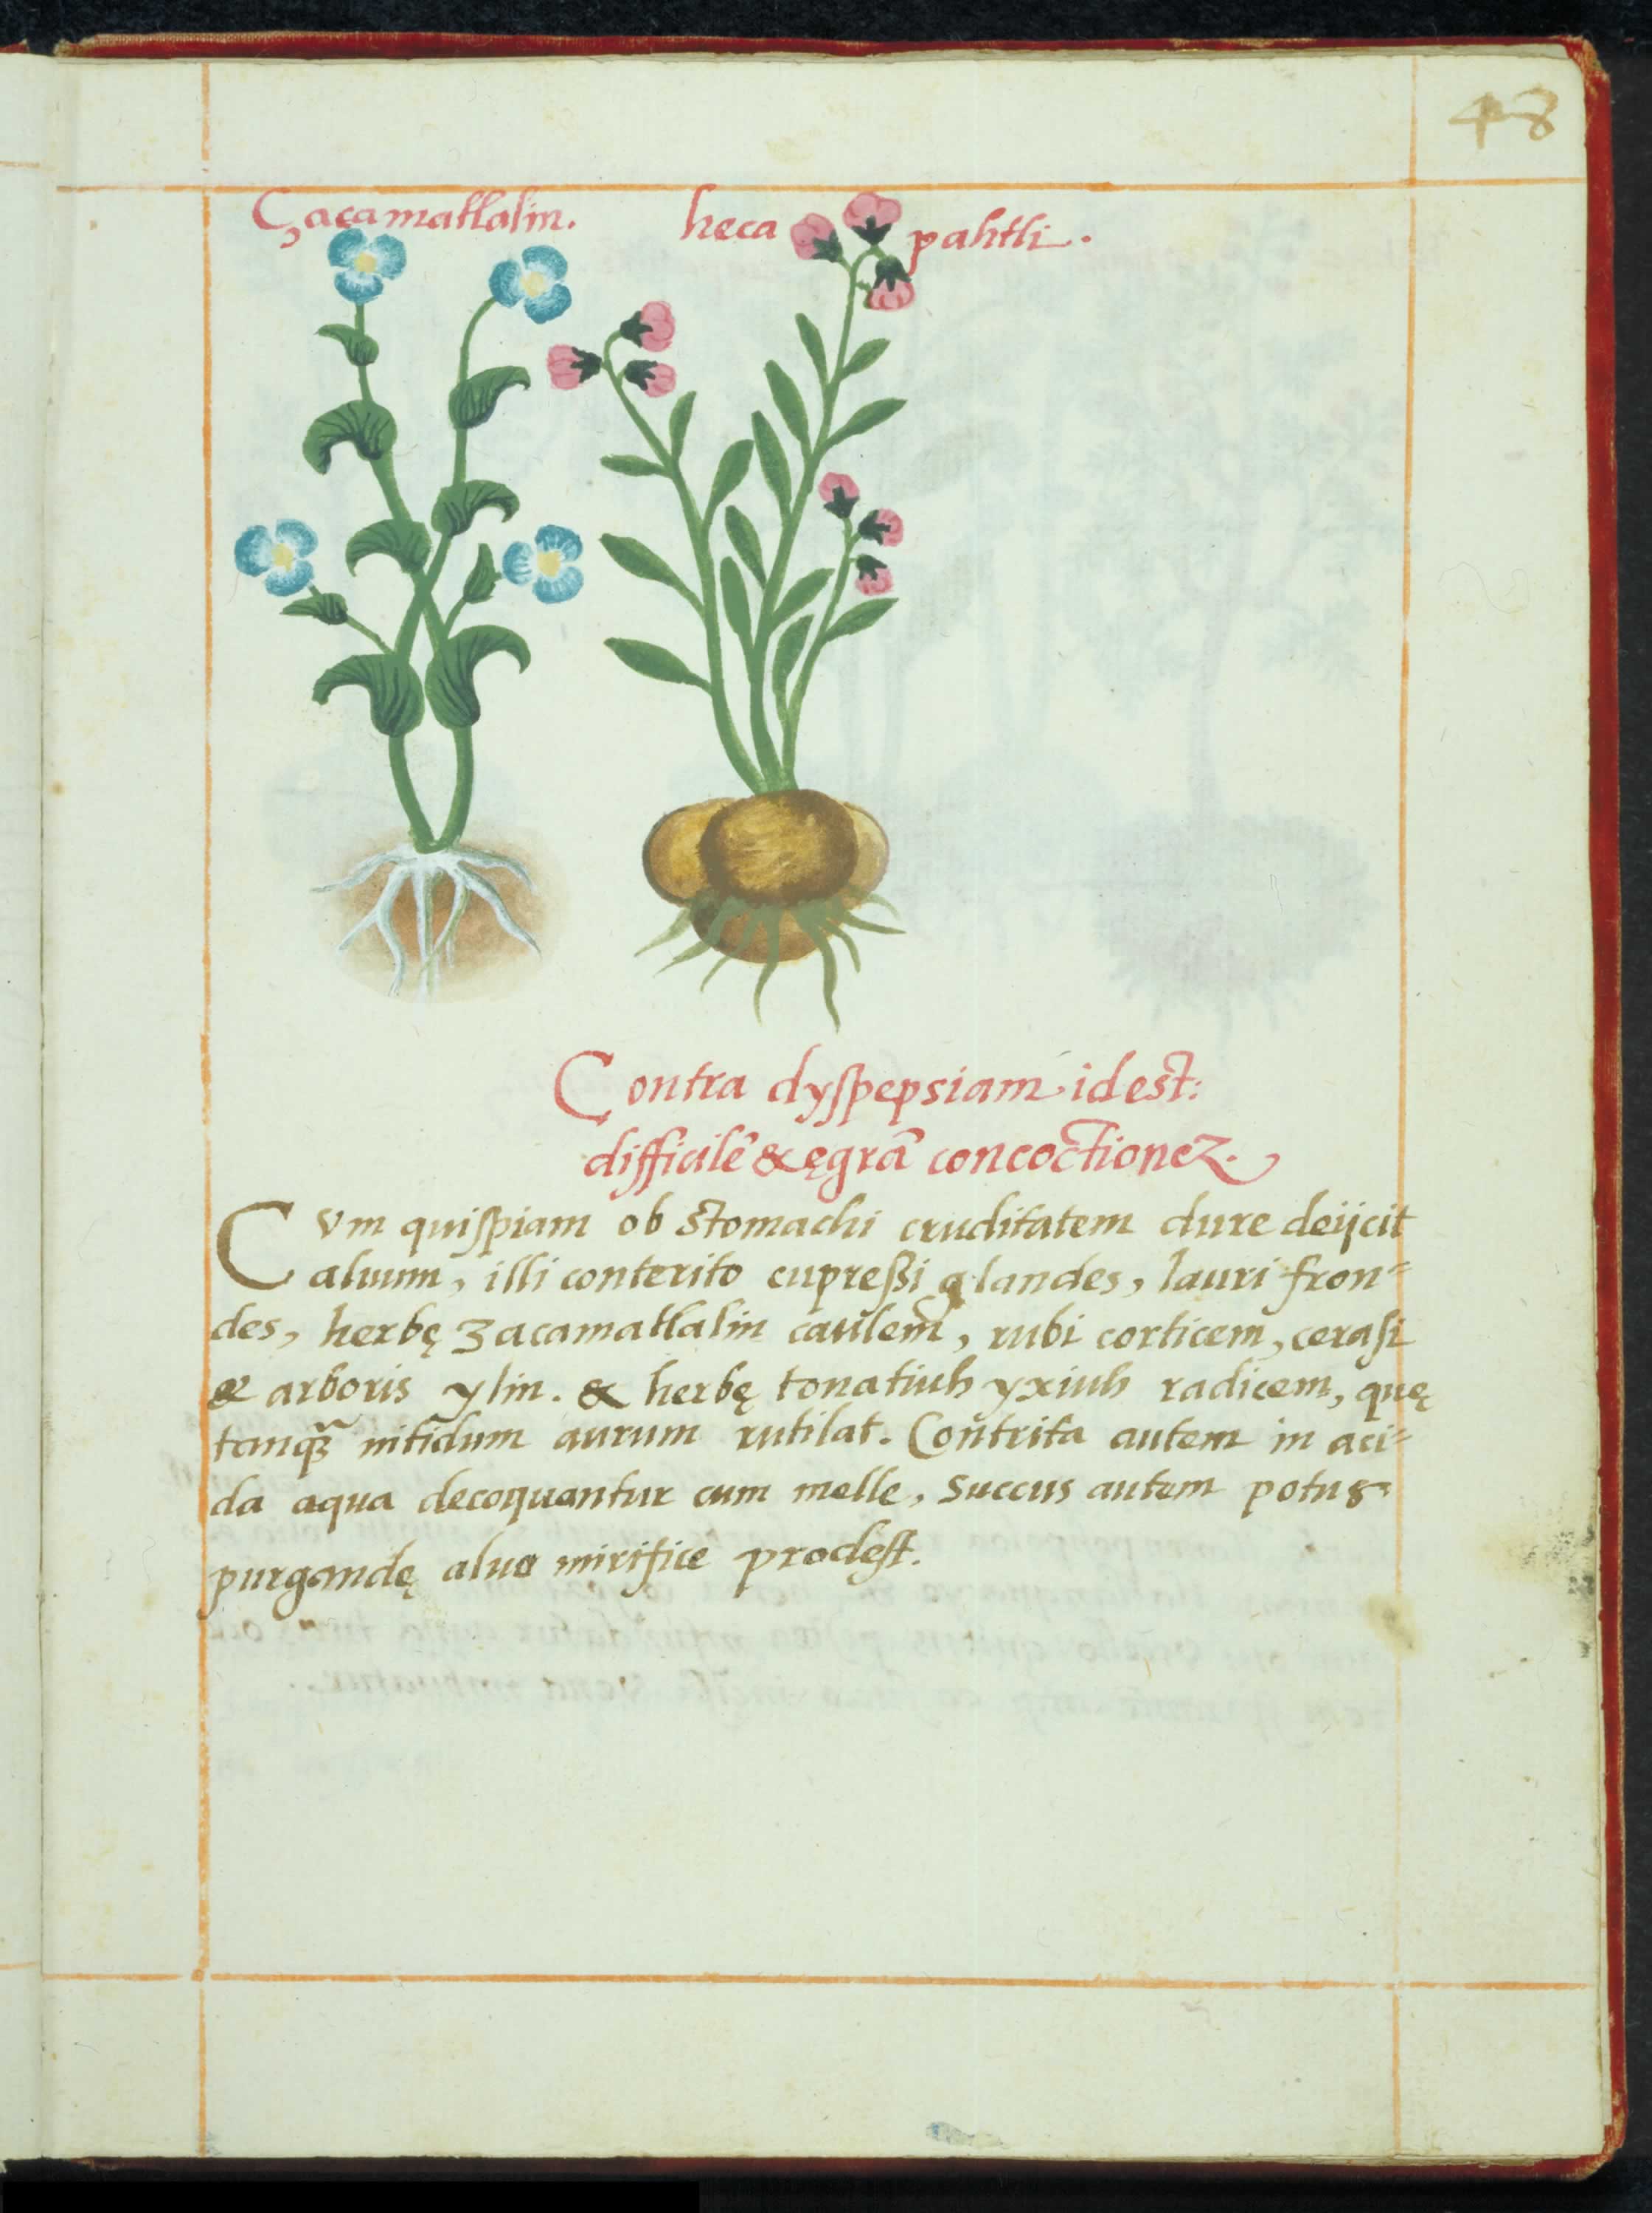 48
Çacamatlalin. heca pahtli.
Contra dyſpepsiam idest:
difficilẽ & ęgrã concoctionez.
CVm quiſpiam ob stomachi cruditatem dure deijcit
aluum, illi conterito cupreßi glandes, lauri fron=
des, herbę zacamatlalin caulem, rubi corticem, ceraſi
& arboris ylin. & herbę tonatiuh yxiuh radicem, quę
tanqꝫ nitidum aurum rutilat. Contrita autem in aci=
da aqua decoquantur cum melle, Succus autem potus
purgandę aluo mirifice prodest.